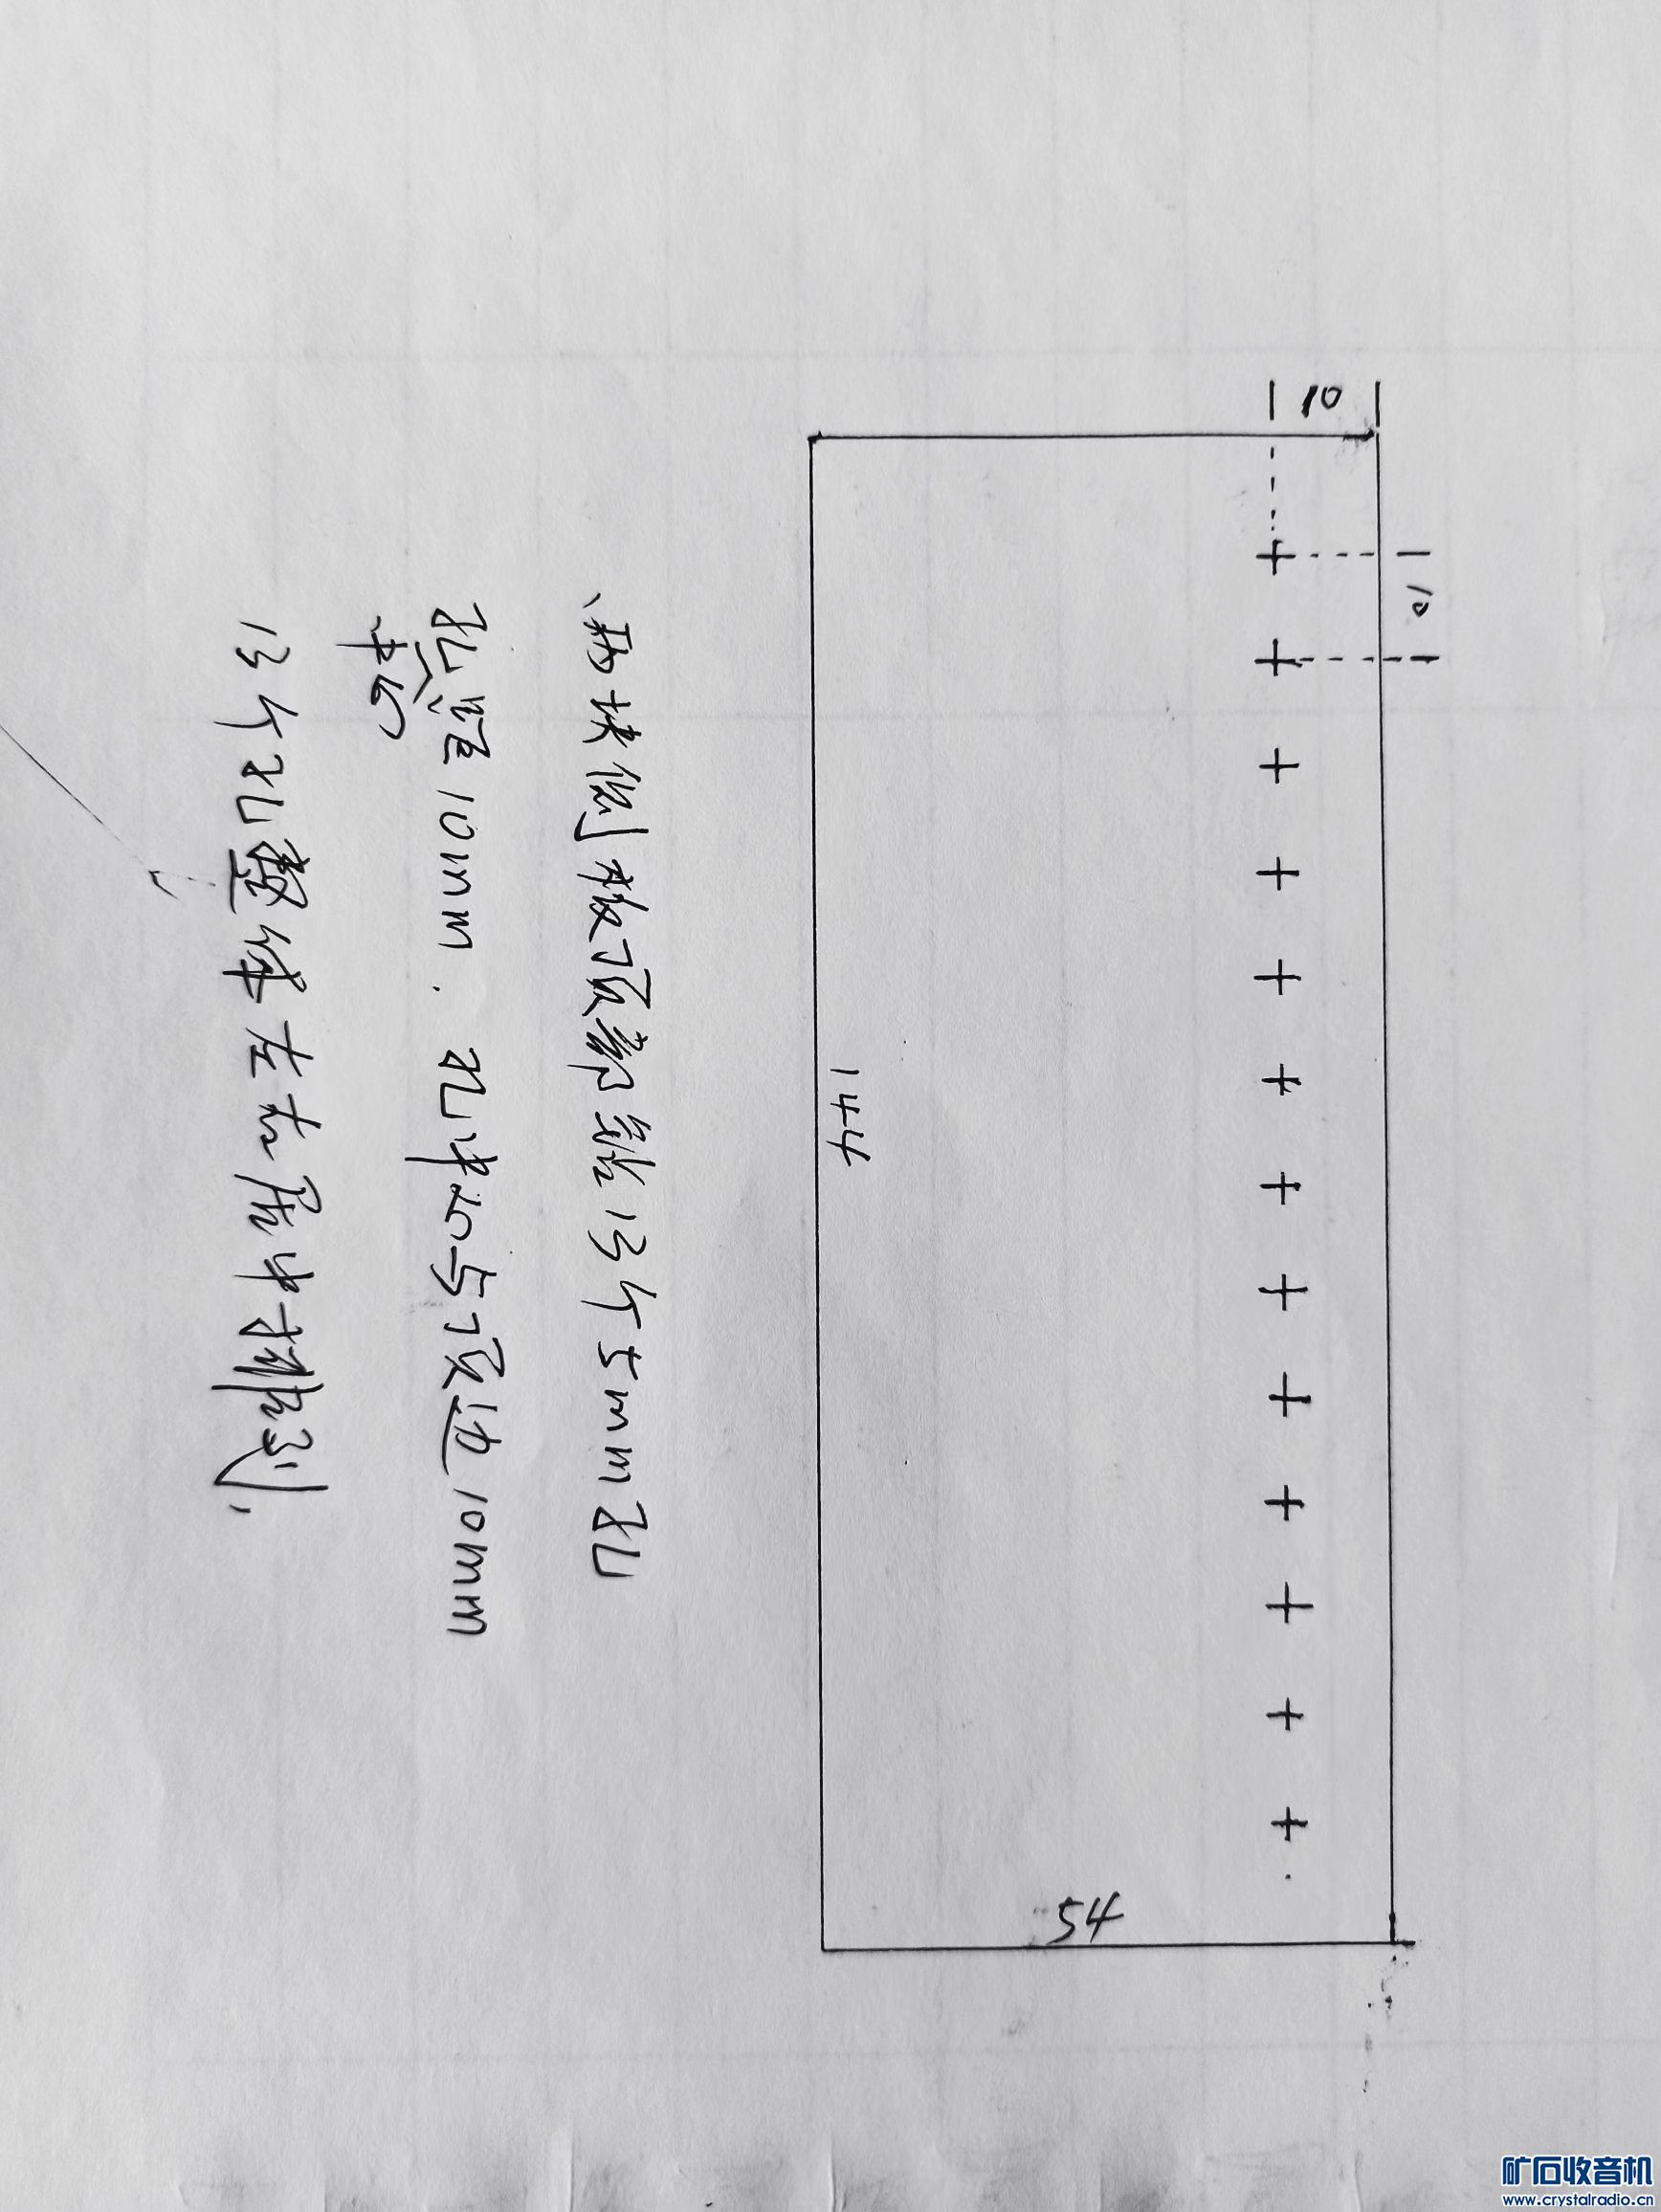 10
10
144
54
两块侧板顶部钻13个5mm孔
孔中心距10mm.孔中心与顶边10mm
13个孔整体左右居中排列.
矿石收音机
www.crystalradio.cn